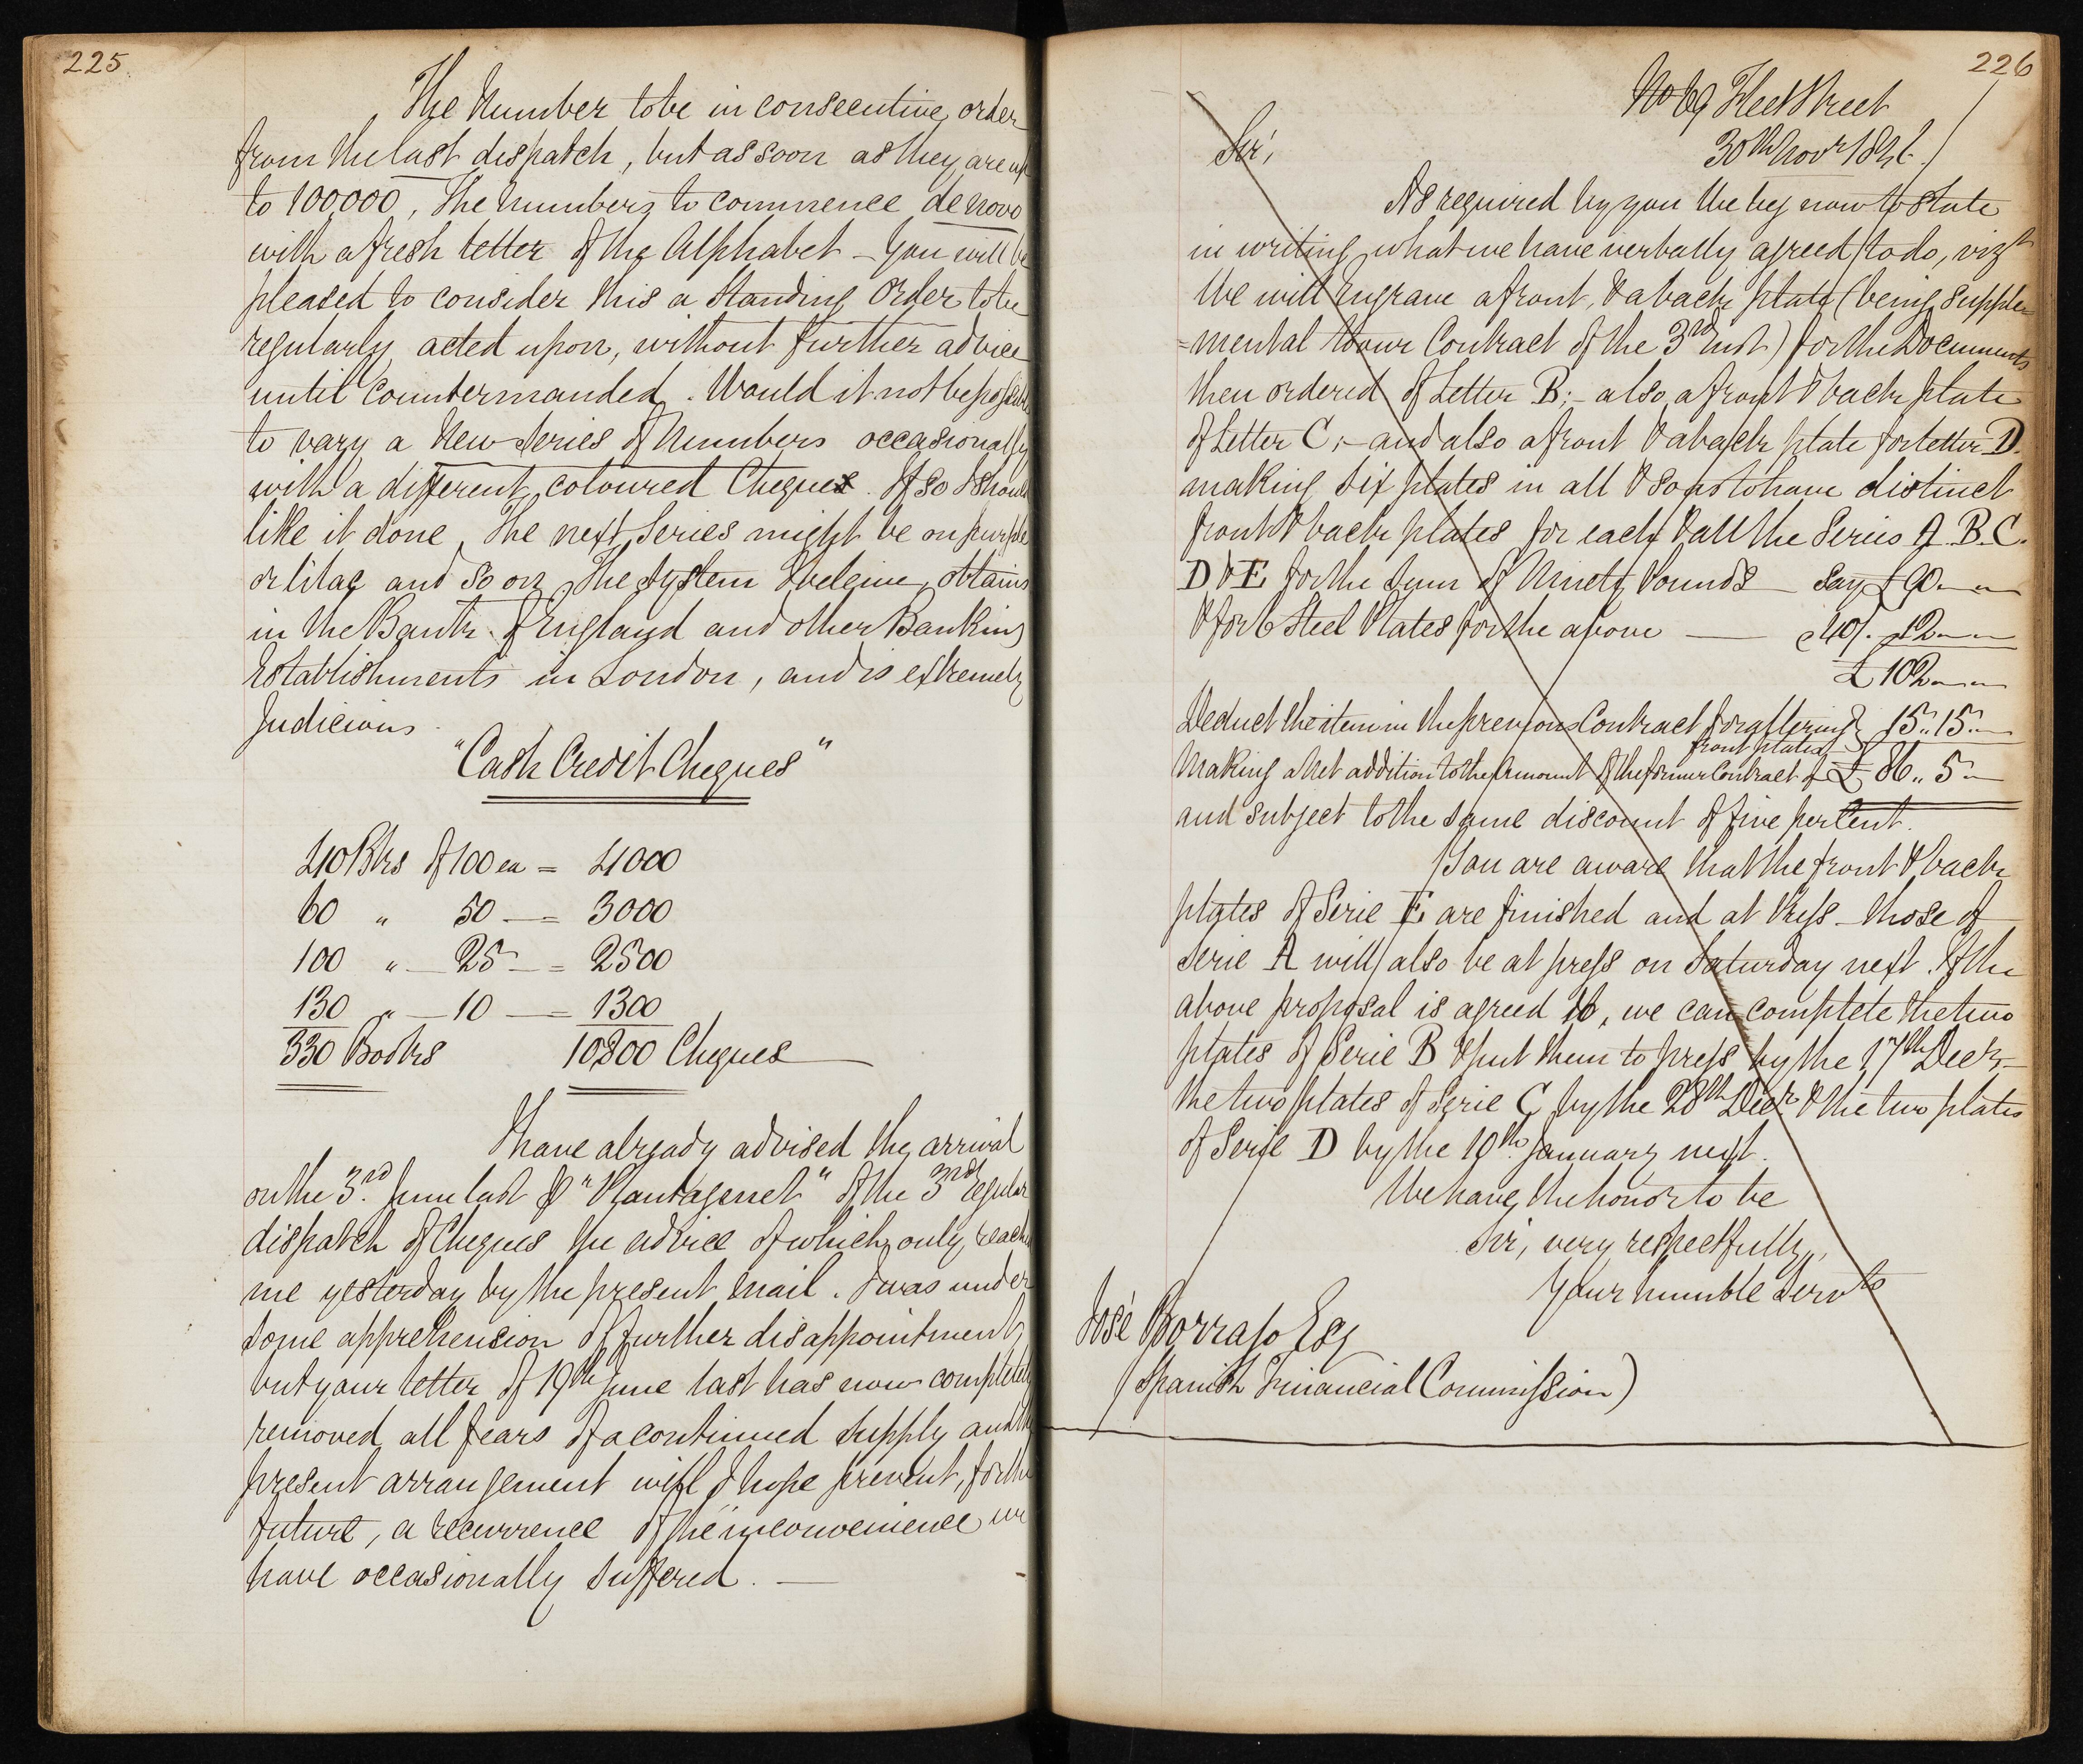 225
The Number to be in consecutive order
from the last dispatch, but as soon as they are up
to 100000, The numbers to commence de novo
with a fresh letter of the Alphabet – You will be
pleased to consider this a Standing Order to be
regularly acted upon, without further advice
until Countermanded. Would it not be possible
to vary a New Series of Numbers occasionally
with a different coloured Cheques. If so I should
like it done, The next Series might be on purple
or lilac and so on The System I believe, obtains
in the Bank of England and other Banking
Establishments in London, and is extremely
Judicious.
"Cash Credit Cheques"
40 Bks of 100 ea = 4000
60 " 50 — = 3000
100 " — 25 — = 2500
130 " — 10 — = 1300
330 Books 10800 Cheques
I have already advised the arrival
on the 3rd June last p "Plantagenet" of the 3rd regular
dispatch of Cheques the advice of which only reached
me yesterday by the present Mail. I was under
some apprehension of further disappointment,
but your letter of 19th June last has now completely
removed all fears of a continued Supply and the
present arrangement will I hope prevent, for the
future, a recurrence of the inconvenience we
have occasionally suffered. —
226
No 69 Fleet Street
30th Novr 
Sir,
As required by you We beg now to State
in writing what we have verbally agreed to do, vizt
We will Engrave a front, & a back plate (being supple=
=mental to our Contract of the 3rd inst) for the Documents
then ordered of Letter B; – also a front & back plate
of Letter C; – and also a front & a back plate for letter D.
making six plates in all & so as to have distinct
front & back plates for each & all the Series A. B. C.
D & E for the Sum of Ninety Pounds — say £ 90 " "
& for 6 Steel Plates for the above — @ 40/. 12 " "
£ 102 " "
Deduct the item in the previous Contract for altering 15 " 15 "
front plates
Making a Net addition to the Amount of the former Contract of £ 86 " 5 "
and subject to the same discount of five per Cent.
You are aware that the front & back
plates of Serie E are finished and at Press – those of
Serie A will also be at press on Saturday next. If the
above proposal is agreed to, we can complete the two
plates of Serie B & put them to press by the 17th Decr –
the two plates of Serie C by the 28th Decr & the two plates
of Serie D by the 10th January next.
We have the honor to be
Sir, very respectfully,
Your humble Servts
José Borrajo Esq
(Spanish Financial Commission)